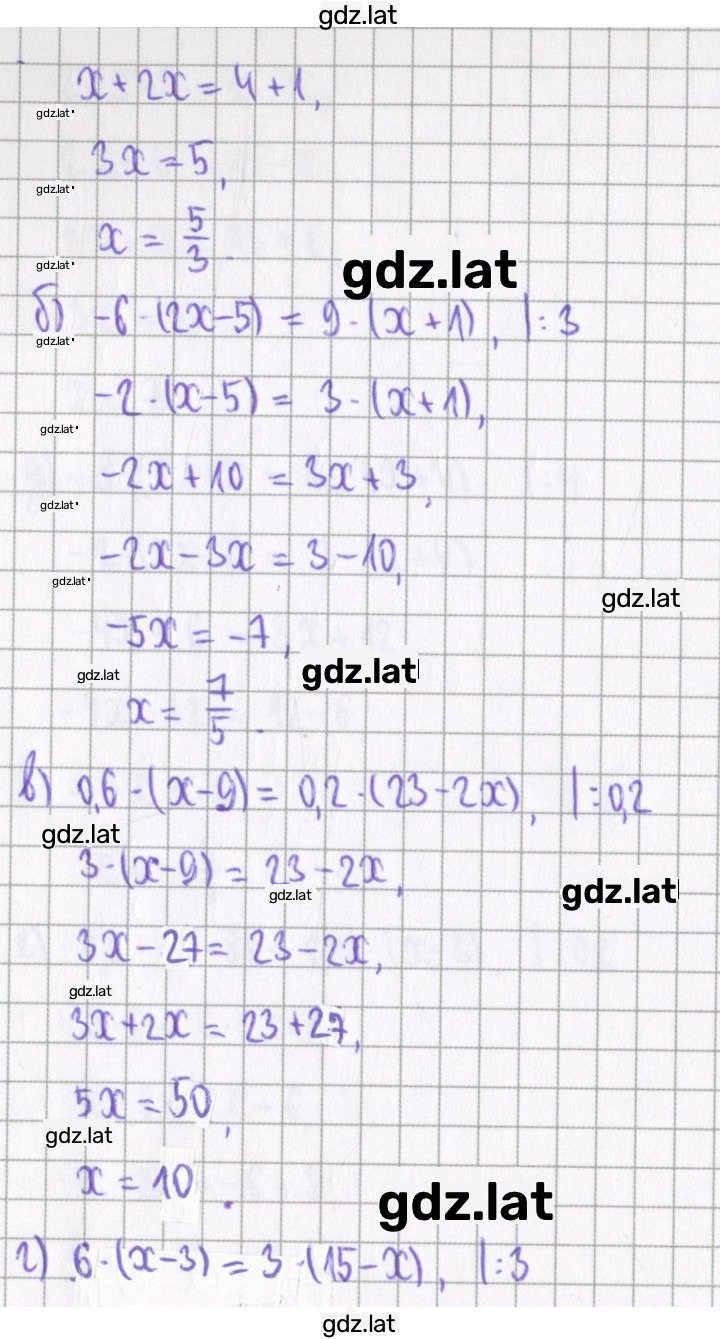 gdz.lat
x + 2x = 4 + 1,
gdz.lat
3x = 5,
gdz.lat
x = 5/3.
gdz.lat
gdz.lat
б) -6 · (2x - 5) = 9 · (x + 1), | : 3
gdz.lat
-2 · (x - 5) = 3 · (x + 1),
gdz.lat
-2x + 10 = 3x + 3,
gdz.lat
-2x - 3x = 3 - 10,
gdz.lat
gdz.lat
-5x = -7,
gdz.lat
gdz.lat
x = 7/5.
в) 0,6 · (x - 9) = 0,2 · (23 - 2x), | : 0,2
gdz.lat
3 · (x - 9) = 23 - 2x,
gdz.lat
gdz.lat
3x - 27 = 23 - 2x,
gdz.lat
3x + 2x = 23 + 27,
5x = 50,
gdz.lat
x = 10.
gdz.lat
г) 6 · (x - 3) = 3 · (15 - x), | : 3
gdz.lat